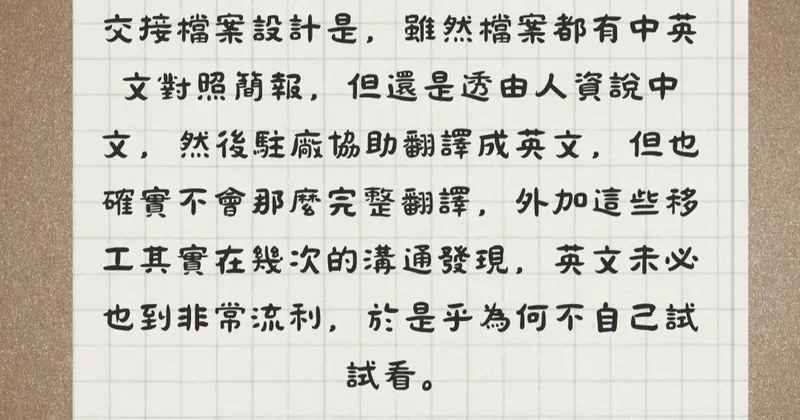 交接檔案設計是，雖然檔案都有中英
文對照簡報，但還是透由人資說中
文，然後駐廠協助翻譯成英文，但也
確實不會那麼完整翻譯，外加這些移
工其實在幾次的溝通發現，英文未必
也到非常流利，於是乎為何不自己試
試看。